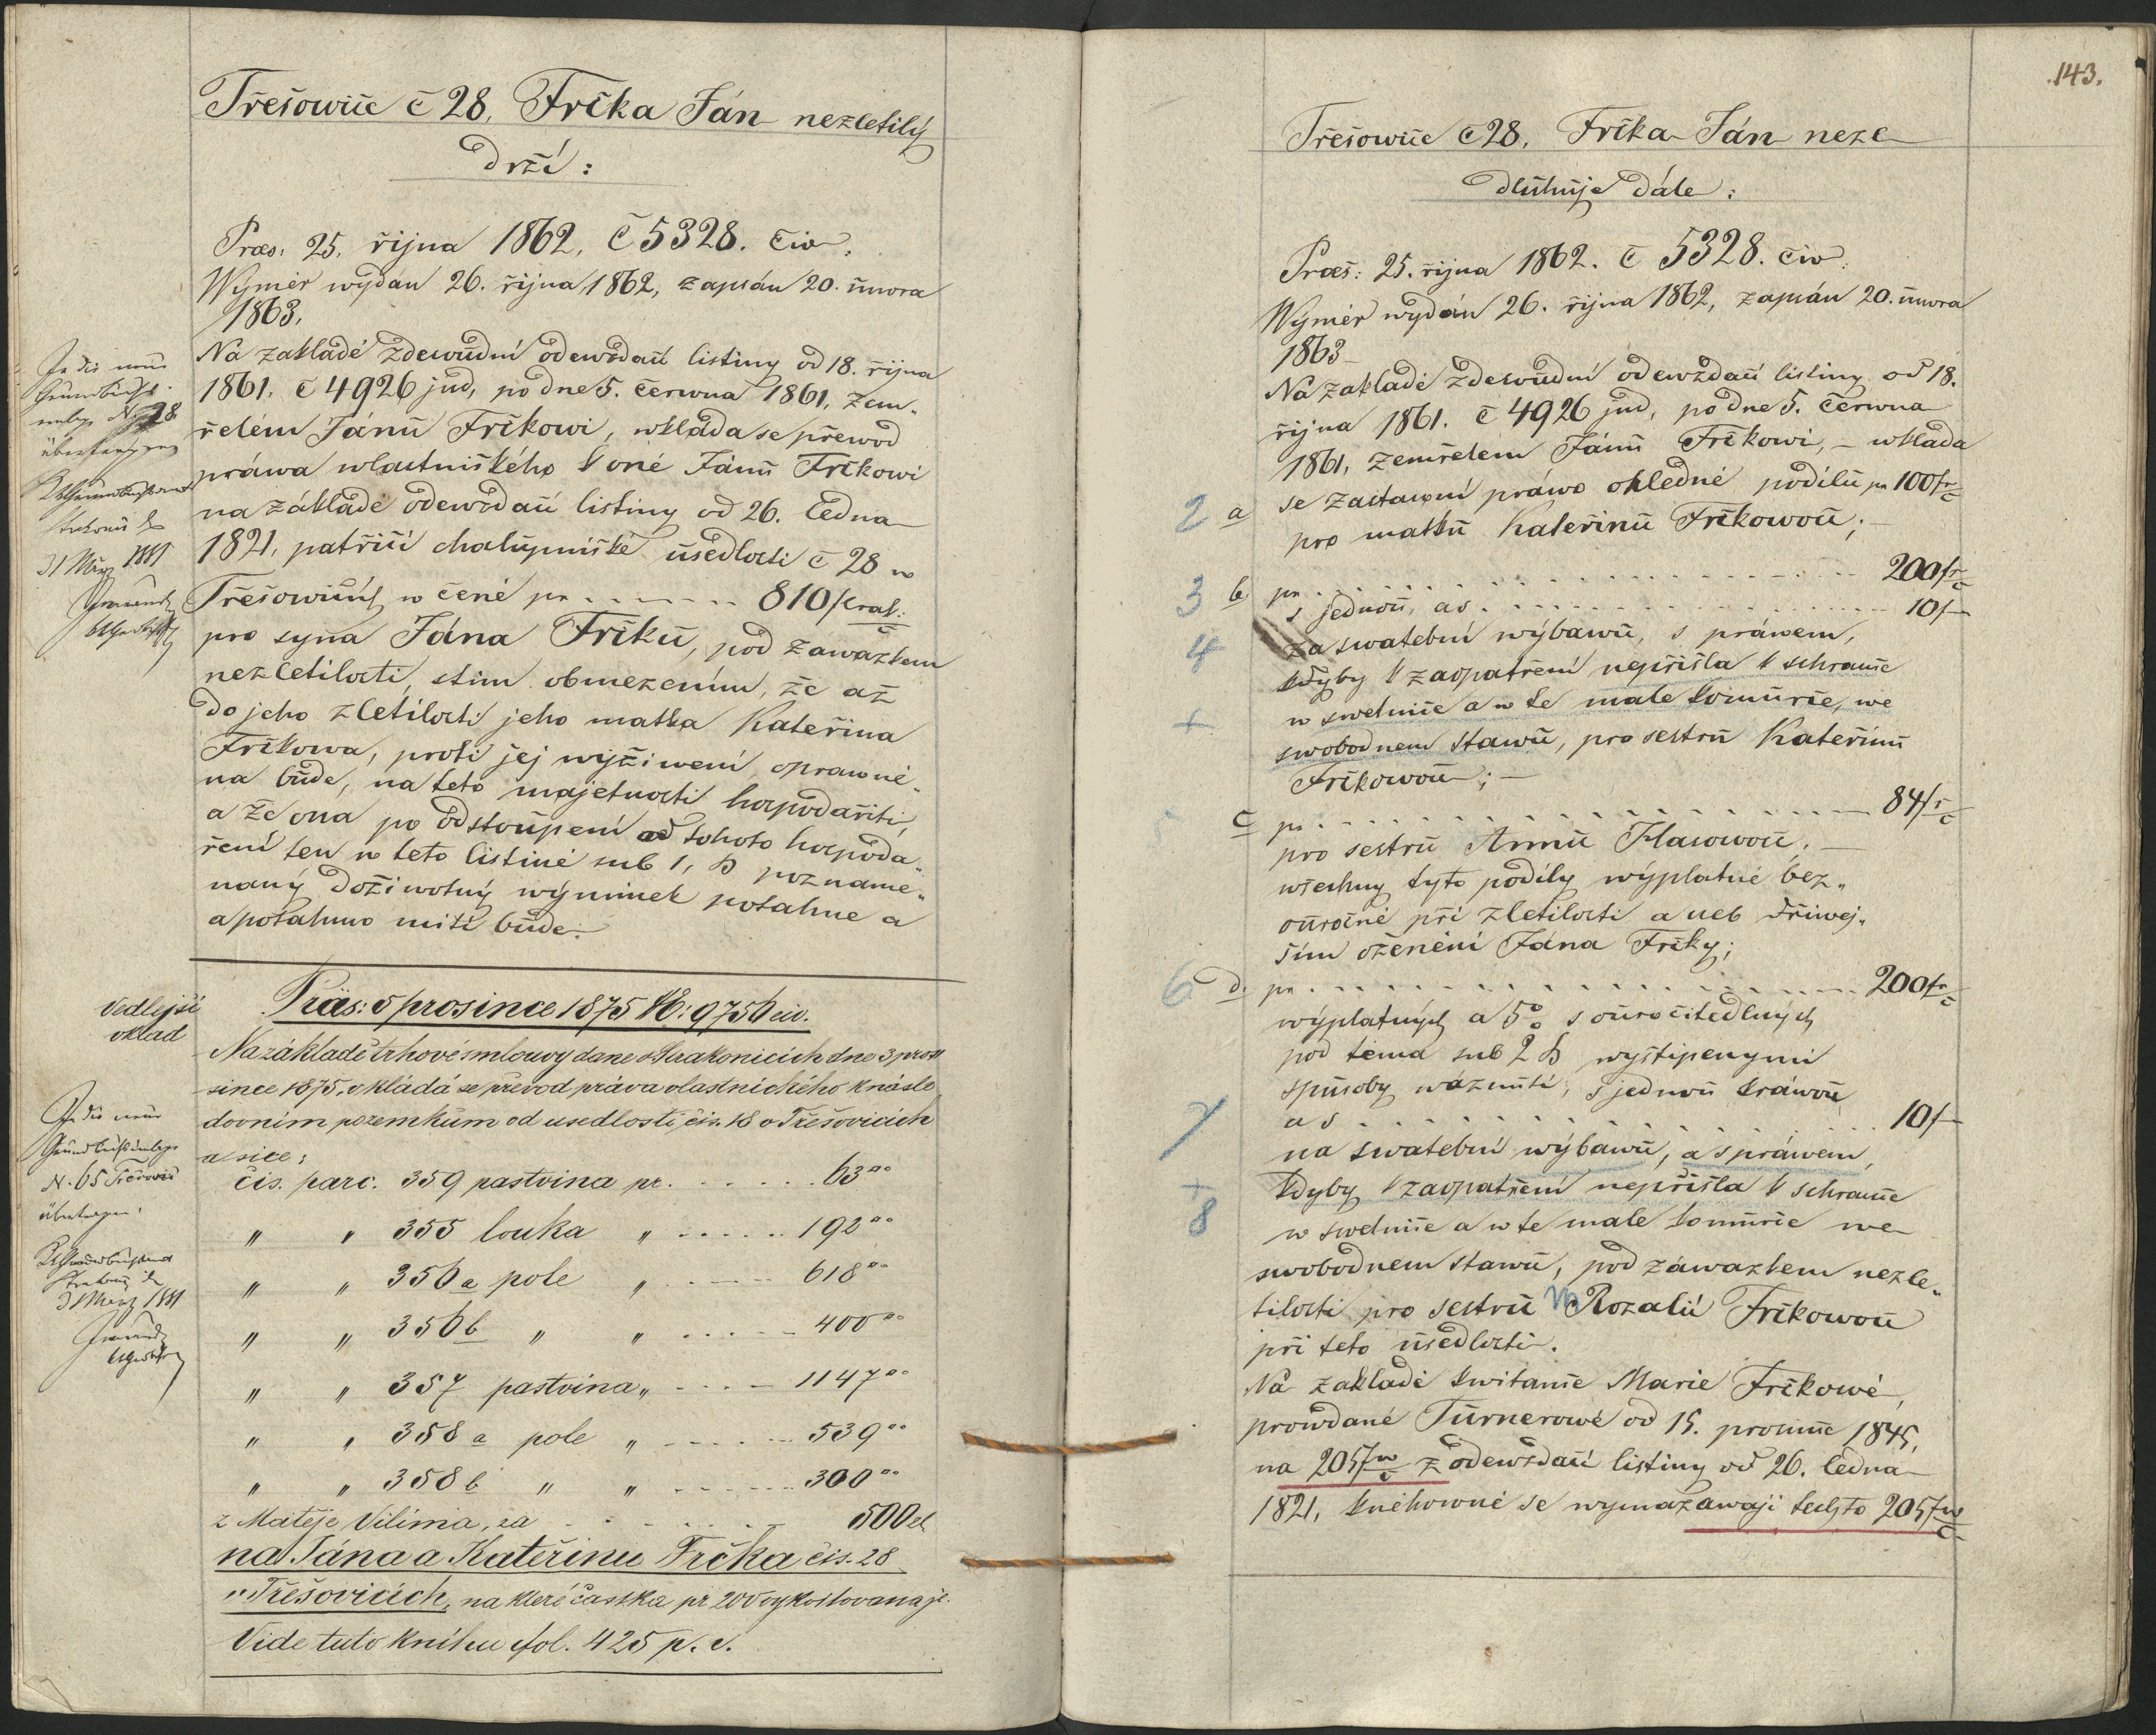 Třešowice č 28, Frčka Ján nezletilý
drží:
Præs: 25. řijna 1862, č 5328. civ.
Wýměr wydán 26. řijna 1862, zapsán 20. února
1863.
Na základě zdewůdní odewzdací listiny od 18. řijna
1861, č 4926 jud, po dne 5. června 1861, zem„
řelém Jánu Frčkowi, wkláda se přewod
práwa wlastnického k oné Jánu Frčkowi
na základě odewzdací listiny od 26. ledna
1821, patřící chalupnické usedlosti č 28 w
Třešowicích w ceně pr 810 f
pro syna Jána Frčku, pod zawazkem
nezletilosti, s tím obmezením, že až
do jeho zletilosti jeho matka Kateřina
Frčkowa, proti jej wyžiweni opráwně„
na bude, na teto majetnosti hospodařiti,
a že ona po odstoupení od tohoto hospoda„
ření ten w teto listině sub 1, b pozname„
naný dožiwotný wýminek potahne a
a potahmo míti bude.
Vedlejší
vklad
Präs: 5 prosince 1875 №: 9756 civ.
Na základě trhové smlouvy dane v Strakonicích dne 3 pro„
since 1875, vkládá se převod práva vlastnického k násle
dovním pozemkům od usedlosti čis. 18 v Třešovicích
a sice:
čis. parc. 359 pastvina pr. 63°°
„ „ 355 louka „ 192°°
„ „ 356 a pole „ 618°°
„ „ 356 b „ „ 400°°
„ „ 357 pastvina „ 1147°°
„ „ 358 a pole „ 539°°
„ „ 358 b „ „ 300°°
z Matěje Vilíma, za 500 zl
na Jána a Kateřinu Frčka čis. 28
v Třešovicích, na které častka pr 200 vykoštovana je.
Vide tuto knihu fol. 425 p. v.
In die neue
Grundbuchs
einlage N. 28
übertragen
31 März 1881
In die neue
Grundbuchseinlage
N. 65 Třešovic
übertragen.
31 März 1881
143.
Třešowice č 28. Frčka Ján neze
dlužuje dále:
Præs: 25. řijna 1862. č 5328. civ.
Wýměr wydán 26. řijna 1862, zapsán 20. února
1863
Na základě zdewůdní odewzdací listiny od 18.
řijna 1861. č 4926 jud, po dne 5. června
1861, zemřelem Jánu Frčkowi, – wkláda
2 a se zástawní práwo ohledně podílu pr 100 fr
pro matku Kateřinu Frčkowou;
3 b pr 200 fr
s jednou, a s 10 f
4 za swatební wýbawu, s práwem,
kdyby k zaopatření nepřišla k schranie
+ w swetnice a w te male komurce, we
swobodnem stawu, pro sestru Kateřinu
Frčkowou; –
c pr 84 fr
pro sestru Annu Hlasowou. –
wšechny tyto podíly wýplatné bez„
ouročně při zletilosti a neb dřiwej„
ším oženění Jána Frčky;
6 d. pr 200 fr
wýplatných a 5% s ouročitedlných
pod těma sub 2 b wyštipenymi
spusoby wázností, s jednou kráwou
7 a s 10 f
na swatební wýbawu, a s práwem,
+ kdyby k zaopatření nepřišla k schranie
8 w swetnice a w te male komurce we
swobodnem stawu, pod záwazkem nezle„
tilosti pro sestru Rozalii Frčkowou
při teto usedlosti.
Na základě kwitance Marie Frčkowé,
prowdané Turnerowé od 15. prosince 1845,
na 205 f z odewzdací listiny od 26. ledna
1821, knihowně se wymazáwají techto 205 f